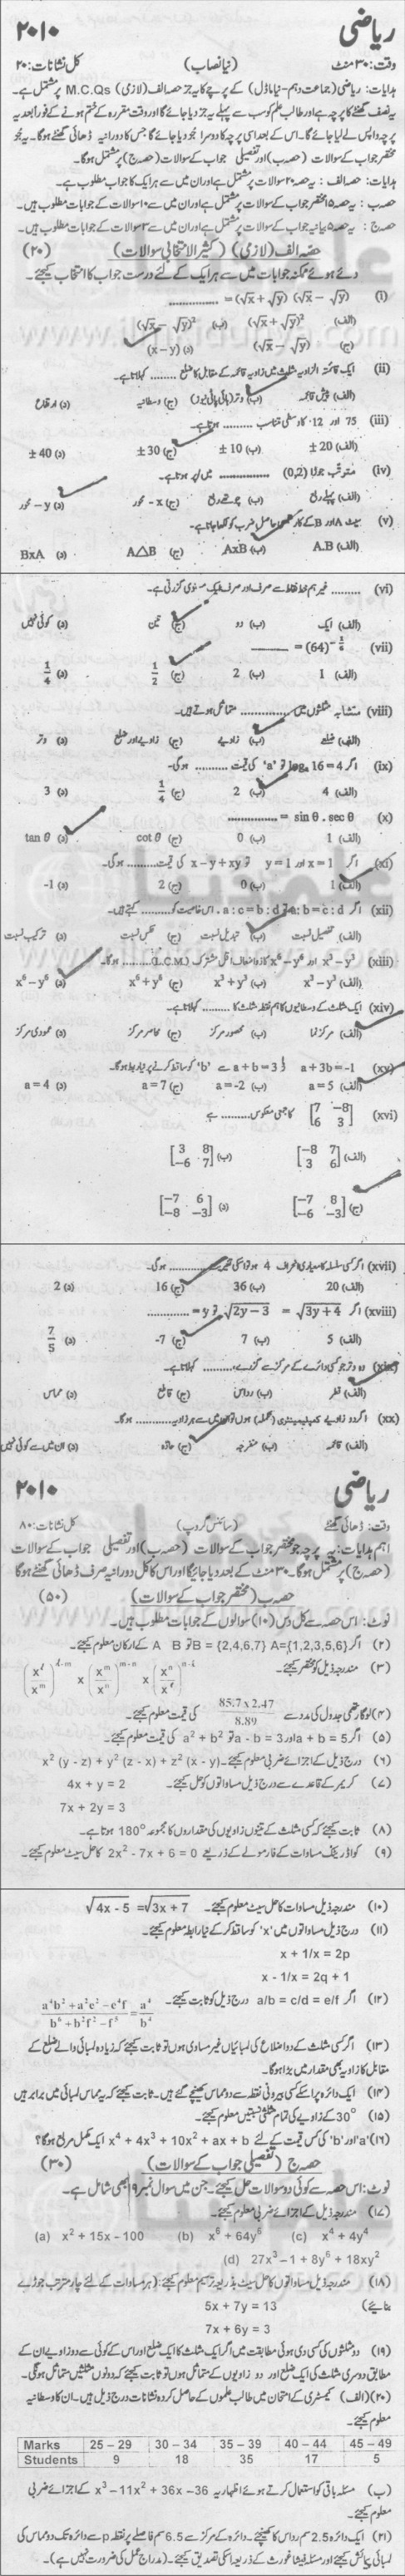 ریاضی ۲۰۱۰
وقت: ۳۰ منٹ (نیا نصاب) کل نشانات: ۲۰
ہدایات: ریاضی (جماعت دہم-نیا ماڈل) کے پرچے کا یہ جز حصہ الف (لازمی) M.C.Qs پر مشتمل ہے۔
یہ نصف گھنٹے کا پرچہ ہے اور طالب علم کو سب سے پہلے یہ جز دیا جائے گا اور وقت مقررہ کے ختم ہونے کے فوراً بعد یہ
پرچہ واپس لے لیا جائے گا۔ اس کے بعد اسی پرچہ کا دوسرا جُز دیا جائے گا جس کا دورانیہ ڈھائی گھنٹے ہوگا۔ یہ جُز
مختصر جواب کے سوالات (حصہ ب) اور تفصیلی جواب کے سوالات (حصہ ج) پر مشتمل ہوگا۔
ہدایات: حصہ الف: یہ حصہ ۲۰ سوالات پر مشتمل ہے اور ان میں سے ہر ایک کا جواب مطلوب ہے۔
حصہ ب: یہ حصہ ۱۵ مختصر جواب کے سوالات پر مشتمل ہے اور ان میں سے ۱۰ سوالات کے جوابات مطلوب ہیں۔
حصہ ج: یہ حصہ ۵ بیانیہ جواب کے سوالات پر مشتمل ہے اور ان میں سے ۳ سوالات کے جوابات مطلوب ہیں۔
حصہ الف (لازمی) (کثیر الانتخابی سوالات) (۲۰)
دئے ہوئے ممکنہ جوابات میں سے ہر ایک کے لئے درست جواب کا انتخاب کیجئے۔
(i) (√x + √y) (√x − √y) = ............
(الف) (√x + √y)² (ب) (√x − √y)²
(ج) (√x − √y) (د) (x−y)
(ii) ایک قائمۃ الزاویہ مثلث میں زاویہ قائمہ کے مقابل کا ضلع ........ کہلاتا ہے۔
(الف) قائمہ (ب) وتر (ہائی پاٹی نیوز) (ج) وسطانیہ (د) ارتفاع
(iii) 75 اور 12 کا وسطی تناسب ......... ہوتا ہے۔
(الف) ± 20 (ب) ± 10 (ج) ± 30 (د) ± 40
(iv) مترتب جوڑا (0,2) ............ میں پر ہوتا ہے۔
(الف) پہلے ربع (ب) چوتھے ربع (ج) x - محور (د) y - محور
(v) سیٹ A اور B کے کارتیسی حاصل ضرب کو لکھا جاتا ہے۔
(الف) A.B (ب) AxB (ج) A△B (د) BxA
(vi) ......... غیر ہم خط نقاط سے صرف اور صرف ایک مستوی گزرتی ہے۔
(الف) ایک (ب) دو (ج) تین (د) کوئی نہیں
(vii) (64)^-1/6 = ............
(الف) 1 (ب) 2 (ج) 1/2 (د) 1/4
(viii) متشابہ مثلثوں میں ............ متماثل ہوتے ہیں۔
(الف) ضلعے (ب) زاویے (ج) زاویے اور ضلع (د) وتر
(ix) اگر logₐ 16 = 4 تو 'a' کی قیمت ......... ہوگی۔
(الف) 4 (ب) 2 (ج) 1/4 (د) 3
(x) sin θ . sec θ = ............
(الف) 1 (ب) 0 (ج) cot θ (د) tan θ
(xi) اگر x = 1 اور y = 1 تو x − y + xy کی قیمت......... ہوگی۔
(الف) 1 (ب) 0 (ج) 2 (د) -1
(xii) اگر a : b = c : d تو a : c = b : d۔ اس خاصیت کو......... کہتے ہیں۔
(الف) تفصیل نسبت (ب) تبدیل نسبت (ج) عکس نسبت (د) ترکیب نسبت
(xiii) x³−y³ اور x⁶−y⁶ کا ذواضعاف اقل مشترک (L.C.M.)......... ہوگا۔
(الف) x³−y³ (ب) x³+y³ (ج) x⁶+y⁶ (د) x⁶−y⁶
(xiv) ایک مثلث کے وسطانیوں کا ہم نقطہ مثلث کا ......... کہلاتا ہے۔
(الف) مرکز نما (ب) محصور مرکز (ج) محاصر مرکز (د) عمودی مرکز
(xv) a + 3b = -1 اور a + b = 3 سے 'b' کو ساقط کرنے پر نیا ربط ہوگا۔
(الف) a = 5 (ب) a = -2 (ج) a = 7 (د) a = 4
(xvi) [7 −8 / 6 3] کا جمعی معکوس......... ہے
(الف) [−8 7 / 3 6] (ب) [3 8 / −6 7]
(ج) [−7 8 / −6 −3] (د) [−7 6 / −8 −3]
(xvii) اگر کسی سلسلہ کا معیاری انحراف 4 ہو تو اسکی تغیریت......... ہوگی۔
(الف) 20 (ب) 36 (ج) 16 (د) 2
(xviii) اگر √3y + 4 = √2y − 3 تو y = ............
(الف) 5 (ب) 7 (ج) -7 (د) 7/5
(xix) وہ وتر جو کسی دائرے کے مرکز سے گزرے،......... کہلاتا ہے۔
(الف) قطر (ب) رداس (ج) قاطع (د) مماس
(xx) اگر دو زاویے کمپلیمینٹری (تکملہ) ہوں تو ان میں سے ہر زاویہ......... ہوگا۔
(الف) قائمہ (ب) منفرجہ (ج) حادہ (د) ان میں سے کوئی نہیں
ریاضی ۲۰۱۰
وقت: ڈھائی گھنٹے (سائنس گروپ) کل نشانات: ۸۰
اہم ہدایات: یہ پرچہ جو مختصر جواب کے سوالات (حصہ ب) اور تفصیلی جواب کے سوالات
(حصہ ج) پر مشتمل ہوگا۔ ۳۰ منٹ کے بعد دیا جائیگا اور اس کا کل دورانیہ صرف ڈھائی گھنٹے ہوگا
حصہ ب (مختصر جواب کے سوالات) (۵۰)
نوٹ: اس حصہ سے کل دس (۱۰) سوالوں کے جوابات مطلوب ہیں۔
(۲) اگر A={1,2,3,5,6} اور B = {2,4,6,7} تو A B کے ارکان معلوم کیجئے۔
(۳) مندرجہ ذیل کو مختصر کیجئے۔
(x^ℓ/x^m)^ℓ-m x (x^m/x^n)^m-n x (x^n/x^ℓ)^n-ℓ
(۴) لوگارتھمی جدول کی مدد سے 85.7 x 2.47 / 8.89 کی قیمت معلوم کیجئے۔
(۵) اگر a + b = 5 اور a - b = 3 تو a² + b² کی قیمت معلوم کیجئے۔
(۶) درج ذیل کے اجزائے ضربی معلوم کیجئے۔ x² (y - z) + y² (z - x) + z² (x - y)
(۷) کریمر کے قاعدے سے درج ذیل مساواتوں کو حل کیجئے۔ 4x + y = 2
7x + 2y = 3
(۸) ثابت کیجئے کہ کسی مثلث کے تینوں زاویوں کی مقداروں کا مجموعہ 180° ہوتا ہے۔
(۹) کواڈریٹک مساوات کے فارمولے کے ذریعے 2x² - 7x + 6 = 0 کا حل سیٹ معلوم کیجئے۔
(۱۰) مندرجہ ذیل مساوات کا حل سیٹ معلوم کیجئے۔ √4x - 5 = √3x + 7
(۱۱) درج ذیل مساواتوں میں 'x' کو ساقط کر کے نیا رابطہ معلوم کیجئے۔
x + 1/x = 2p
x - 1/x = 2q + 1
(۱۲) اگر a/b = c/d = e/f درج ذیل کو ثابت کیجئے۔ a⁴b²+a²e²−e⁴f / b⁶+b²f²−f⁵ = a⁴/b⁴
(۱۳) اگر کسی مثلث کے دو اضلاع کی لمبائیاں غیر مساوی ہوں تو ثابت کیجئے کہ زیادہ لمبائی والے ضلع کے
مقابل کا زاویہ بھی مقدار میں بڑا ہوگا۔
(۱۴) ایک دائرہ پر اسکے کسی بیرونی نقطہ سے دو مماس کھینچے گئے ہیں۔ ثابت کیجئے کہ یہ مماس لمبائی میں برابر ہیں
(۱۵) 30° کے زاویے کی تمام مثلثی نسبتیں معلوم کیجئے۔
(۱۶) 'a' اور 'b' کی کس قیمت کے لئے x⁴ + 4x³ + 10x² + ax + b ایک مکمل مربع ہوگا؟
حصہ ج (تفصیلی جواب کے سوالات) (۳۰)
نوٹ: اس حصہ سے کوئی دو سوالات حل کیجئے۔ جن میں سوال نمبر ۱۹ بھی شامل ہے۔
(۱۷) مندرجہ ذیل کے اجزائے ضربی معلوم کیجئے۔
(a) x² + 15x - 100 (b) x⁶ + 64y⁶ (c) x⁴ + 4y⁴
(d) 27x³ − 1 + 8y⁶ + 18xy²
(۱۸) مندرجہ ذیل مساواتوں کا حل سیٹ بذریعہ ترسیم معلوم کیجئے: (ہر مساوات کے لئے چار مترتب جوڑے
بنائیے) 5x + 7y = 13
7x + 6y = 3
(۱۹) دو مثلثوں کی کسی دی ہوئی مطابقت میں اگر ایک مثلث کا ایک ضلع اور اس کے کوئی سے دو زاویے ان کے
مطابق دوسری مثلث کی ایک ضلع اور دو زاویوں کے متماثل ہوں تو ثابت کیجئے کہ دونوں مثلثیں متماثل ہوگی۔
(۲۰) (الف) کیمسٹری کے امتحان میں طالب علموں کے حاصل کردہ نشانات درج ذیل ہیں۔ ان کا وسطانیہ
معلوم کیجئے۔
Marks 25 – 29 30 – 34 35 – 39 40 – 44 45 – 49
Students 9 18 35 17 5
(ب) مسئلہ باقی کو استعمال کرتے ہوئے اظہاریہ x³ − 11x² + 36x −36 کے اجزائے ضربی
معلوم کیجئے۔
(۲۱) ایک دائرہ 2.5 سم رداس کا کھینچے۔ دائرہ کے مرکز سے 6.5 سم فاصلے پر نقطہ p سے دائرہ تک دو مماس کی
لمبائی پیمائش کیجئے اور مسئلہ فیثاغورث کے ذریعہ اسکی تصدیق کیجئے۔ (مدارج عمل کی ضرورت نہیں ہے)۔